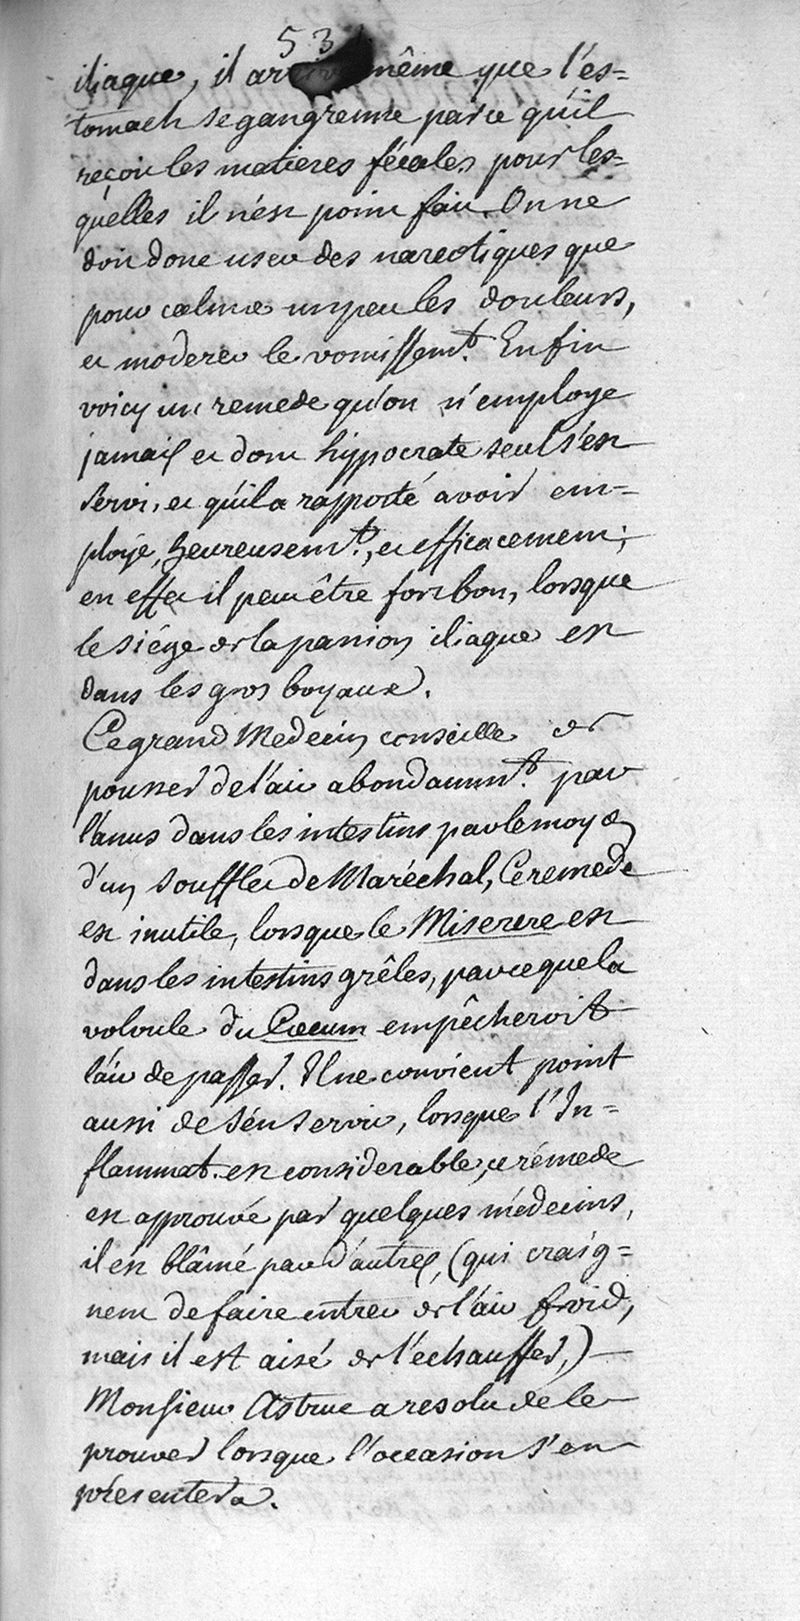 53
iliaque, il arrive même que l'es=
tomach se gangrenne parce qu'il
reçoit les matieres fécales pour les=
quelles il n'est point fait. On ne
doit donc user des narcotiques que
pour calmer un peu les douleurs,
et moderer le vomissemt. Enfin
voicy un remede qu'on n'employe
jamais et dont hyppocrate seul s'est
servi, et qu'il a rapporté avoir em=
ployé, heureusemt., et efficacement;
en effet il peut être fort bon, lorsque
le siége de la passion iliaque est
dans les gros boyaux.
Ce grand Medecin conseille de
pousser de l'air abondammt. par
l'anus dans les intestins par le moyen
d'un soufflet de Maréchal, Ce remede
est inutile, lorsque le Miserere est
dans les intestins grêles, parce que la
volvule du Cœcum empêcheroit
l'air de passer. Il ne convient point
aussi de s'en servir, lorsque l'In=
flammat. est considerable, ce rémede
est approuvé par quelques médecins,
il est blâmé par d'autres, (qui craig=
nent de faire entrer de l'air froid,
mais il est aisé de l'échauffer,)
Monsieur Astruc a resolu de le
prouver lorsque l'occasion s'en
présentera.